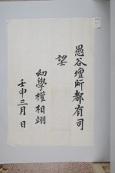 愚谷壇所都有司
望
幼學權相翊
壬申三月 日